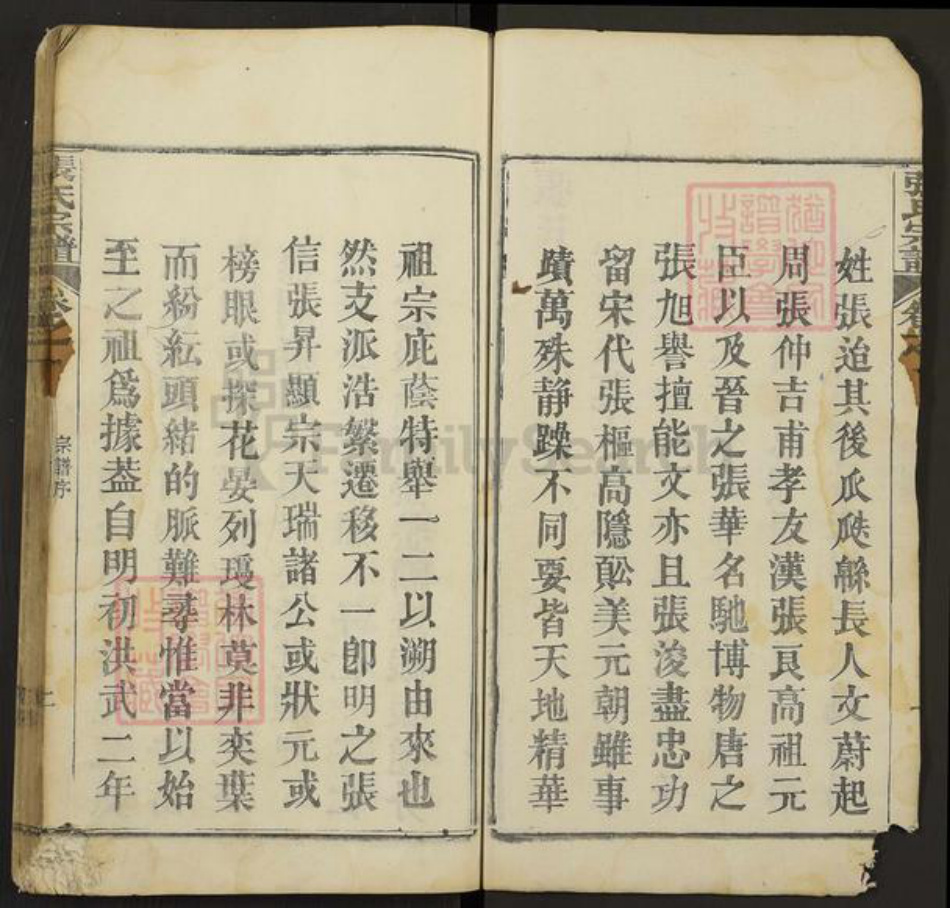 姓張迨其後瓜瓞緜長人文蔚起
周張仲吉甫孝友漢張良高祖元
臣以及晉之張華名馳博物唐之
張旭譽擅能文亦且張浚盡忠功
留宋代張樞高隱訟美元朝雖事
蹟萬殊静躁不同要皆天地精華
祖宗庇蔭特舉一二以溯由來也
然支派浩繁遷移不一卽明之張
信張昇顯宗天瑞諸公或狀元或
榜眼或探花晏列瓊林莫非奕葉
而紛紜頭緒的脈難尋惟當以始
至之祖爲據葢自明初洪武二年
張氏宗譜
宗譜序
張氏宗譜
FamilySearch